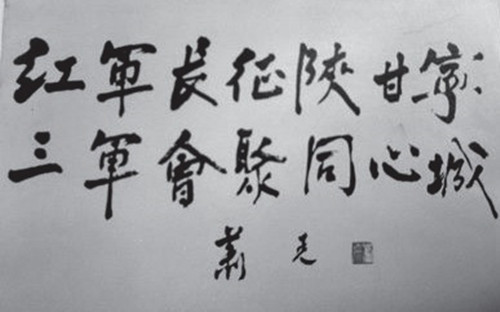 红軍長征陝甘寧
三軍會聚同心城
蕭克